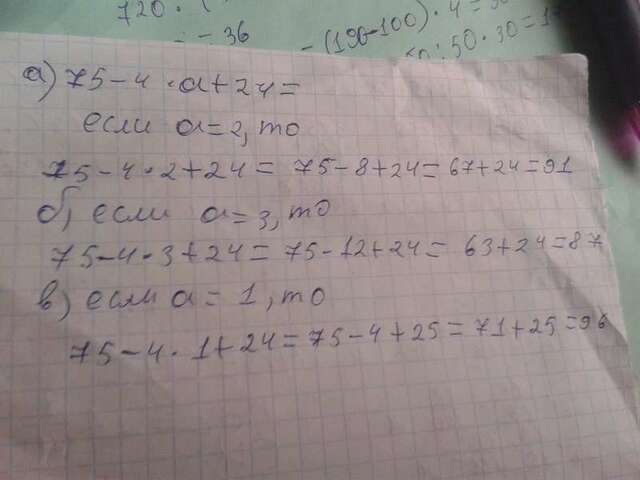 а) 75-4·а+24=
если а=2, то
75-4·2+24=75-8+24=67+24=91
б) если а=3, то
75-4·3+24=75-12+24=63+24=87
в) если а=1, то
75-4·1+24=75-4+25=71+25=96
720:
= 36
=(196-100)·4=
50·30=1